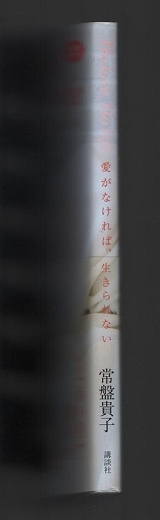 愛がなければ、生きられない
常盤貴子
講談社